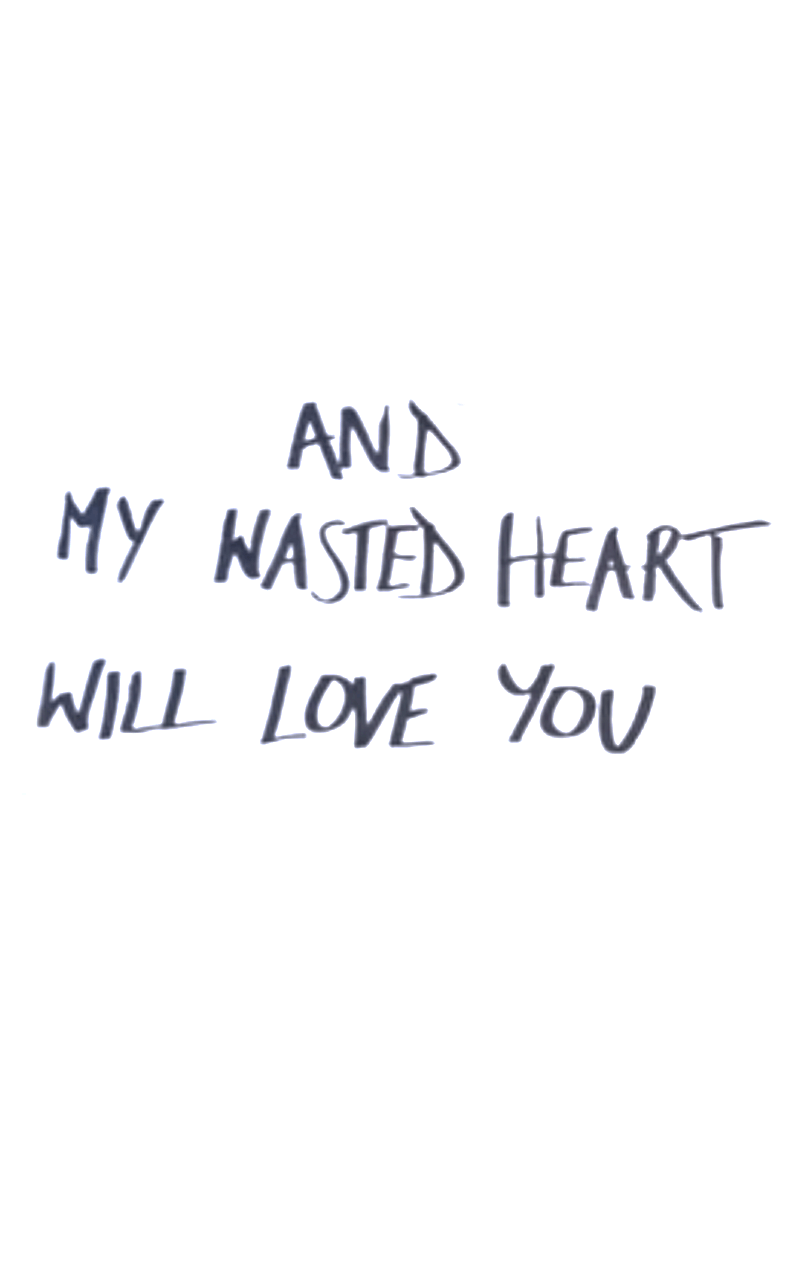 AND
MY WASTED HEART
WILL LOVE YOU